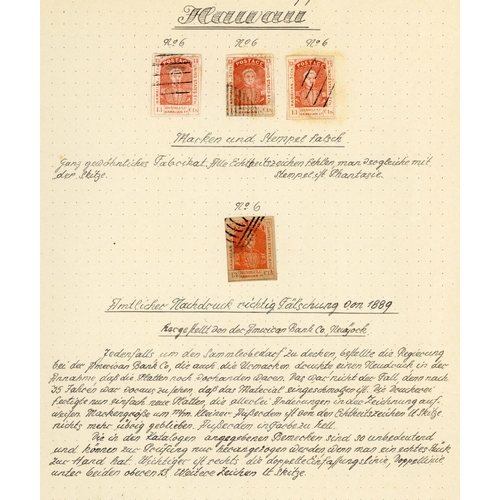 Hawaii
No 6 No 6 No 6
POSTAGE
Marken und Stempel falsch
Ganz gewöhnliches Fabrikat. Alle Echtheitszeichen fehlen, man vergleiche mit
der Skitze. Stempel ist Phantasie.
No 6
Amtlicher Nachdruck richtig Fälschung von 1889
hergestellt von der American Bank Co, Neujork
Jedenfalls um den Sammlerbedarf zu decken, bestellte die Regierung
bei der American Bank Co, die auch die Urmarken druckte einen Neudruck in der
Annahme daß die Platten noch vorhanden waren. Das war nicht der Fall, denn nach
35 Jahren war voraus zu sehen, daß das Material eingeschmolzen ist. Die Druckerei
fertigte nun einfach neue Platten, die allerlei Änderungen in der Zeichnung auf-
weisen. Markengröße um m/m. kleiner. Außerdem ist von den Echtheitszeichen U. Skitze
nichts mehr übrig geblieben. Außerdem in Farbe zu hell.
Die in den Katalogen angegebenen Bemerken sind so unbedeutend
und können zur Prüfung nur herangezogen werden wenn man ein echtes Stück
zur Hand hat. Wichtiger ist rechts die doppelte Einfassungslinie, Doppellinie
unter beiden oberen 13. Weitere Zeichen U. Skitze.